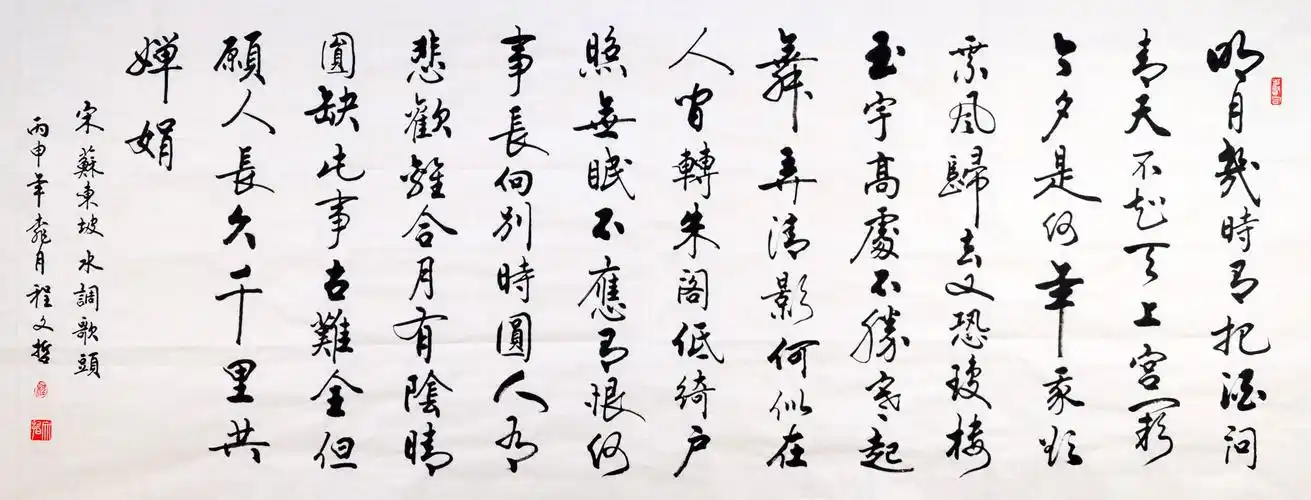 明月幾時有把酒問
青天不知天上宮闕
今夕是何年我欲
乘風歸去又恐瓊樓
玉宇高處不勝寒起
舞弄清影何似在
人間轉朱閣低綺户
照無眠不應有恨何
事長向別時圓人有
悲歡離合月有陰晴
圓缺此事古難全但
願人長久千里共
嬋娟
宋蘇東坡水調歌頭
丙申年桃月程文哲